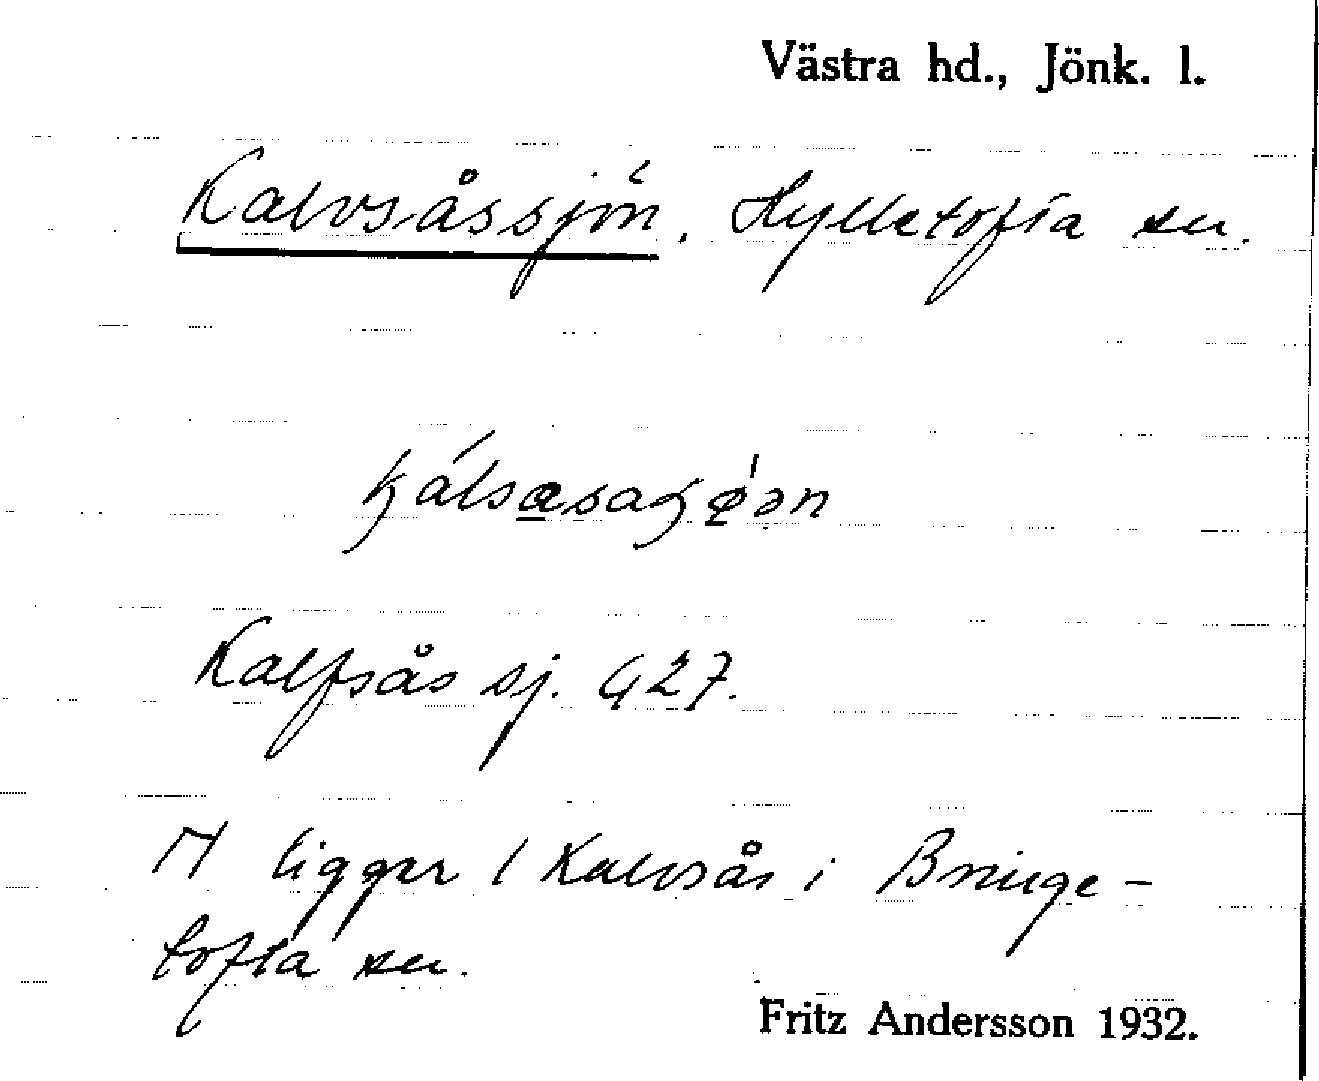 Västra hd., Jönk. l.
Kalvsåssjön, Hylletofta sn.
Kalfsås sj. G 27.
M ligger / Kalvsås i Bringe-
tofta sn.
Fritz Andersson 1932.